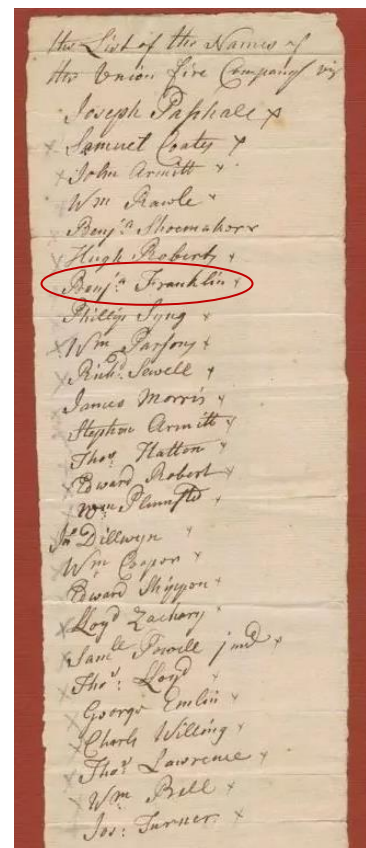 the List of the Names of
the Union fire Company viz
Joseph Paschall x
Samuel Coats x
John Armitt x
Wm Rawle x
Benj.a Shoemaker x
Hugh Roberts x
Benj.a Franklin x
Phillip Syng x
Wm Parsons x
Richd. Sewell x
James Morris x
Stephen Armitt x
Thos. Hatton x
Edward Robert x
Wm Plumsted x
Jno Dillwyn x
Wm Cooper x
Edward Shippen x
Lloyd Zachary x
Samll Powell x
Thos: Lloyd x
George Emlin x
Charls Willing x
Thos Lawrence x
Wm Bell x
Jos: Turner x